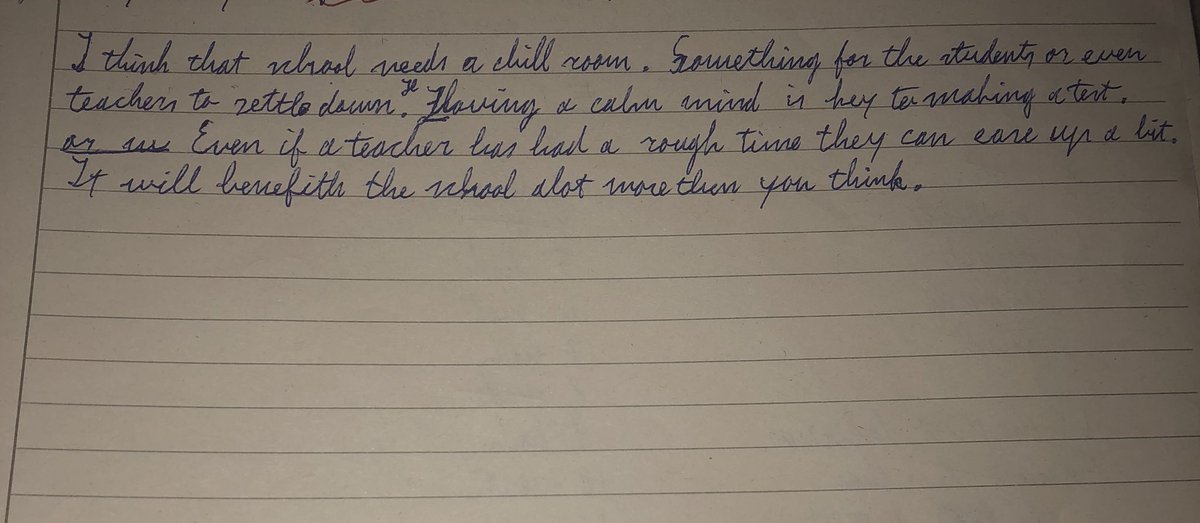 I think that school needs a chill room. Something for the students or even
teachers to settle down. Having a calm mind is key to making a test.
Even if a teacher has had a rough time they can ease up a bit.
It will benefith the school alot more then you think.